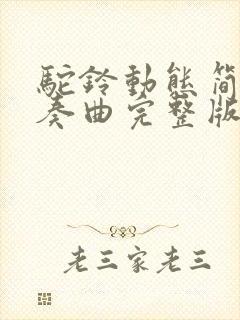 駝鈴動態简
奏曲完整版
老三家老三